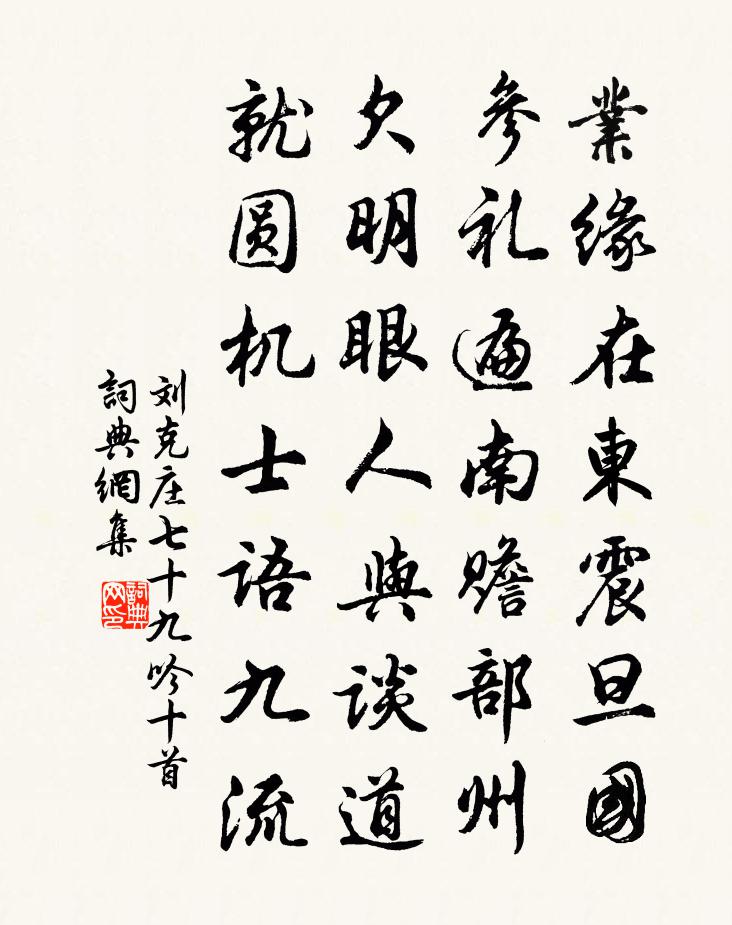 業緣在東震旦國
參礼遍南贍部州
欠明眼人與談道
就圆机士语九流
刘克庄七十九吟十首
詞典網集
詞典网印